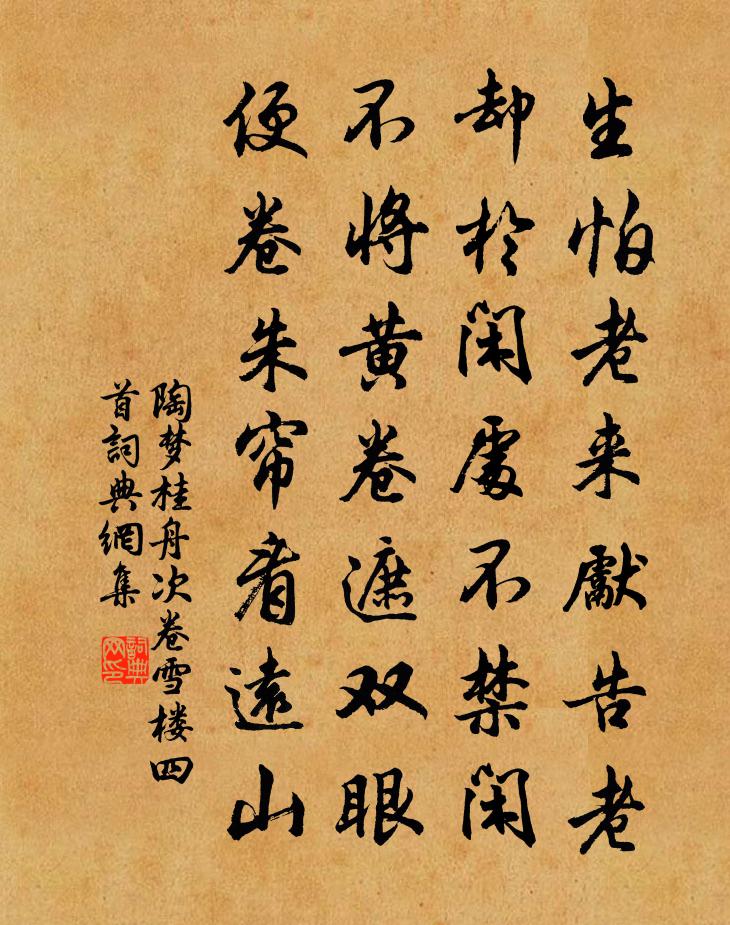 生怕老来告老
却於闲處不禁闲
不將黄卷遮双眼
便卷朱帘看遠山
陶梦桂舟次卷雪楼四
首詞典網集
詞典
网印